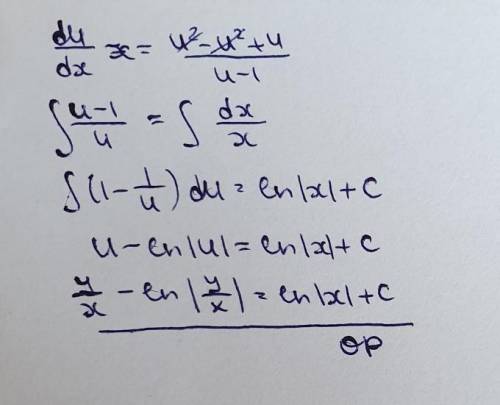 du/dx x = (u² - u² + u)/(u-1)
∫ (u-1)/u = ∫ dx/x
∫(1 - 1/u) du = ln|x| + C
u - ln|u| = ln|x| + C
y/x - ln|y/x| = ln|x| + C
OP